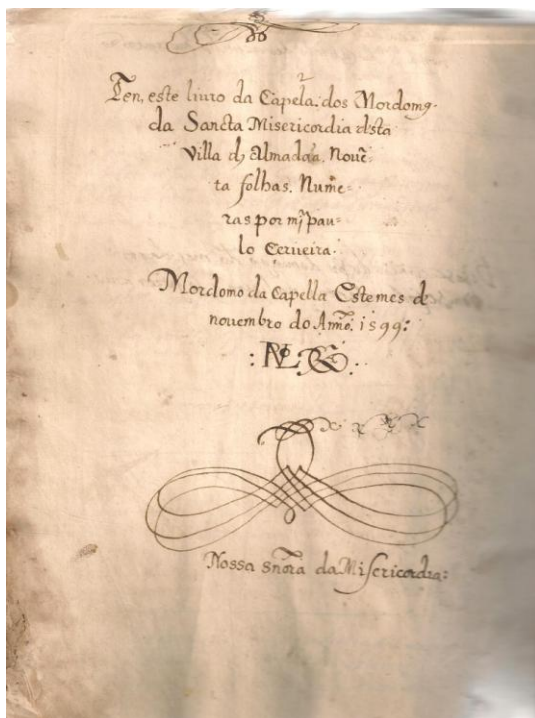 Ten, este liuro da Capela. dos Mordomꝯ.
da Sancta Misericordia desta
Villa dẏ Almadaã. Nouẽ-
ta folhas. Numẽ-
ras por mj̃ pau-
lo Cerueira.
Mordomo da Capella Este mes de
nouembro do Anno. 1599:
Nossa sñora da Misericordia: